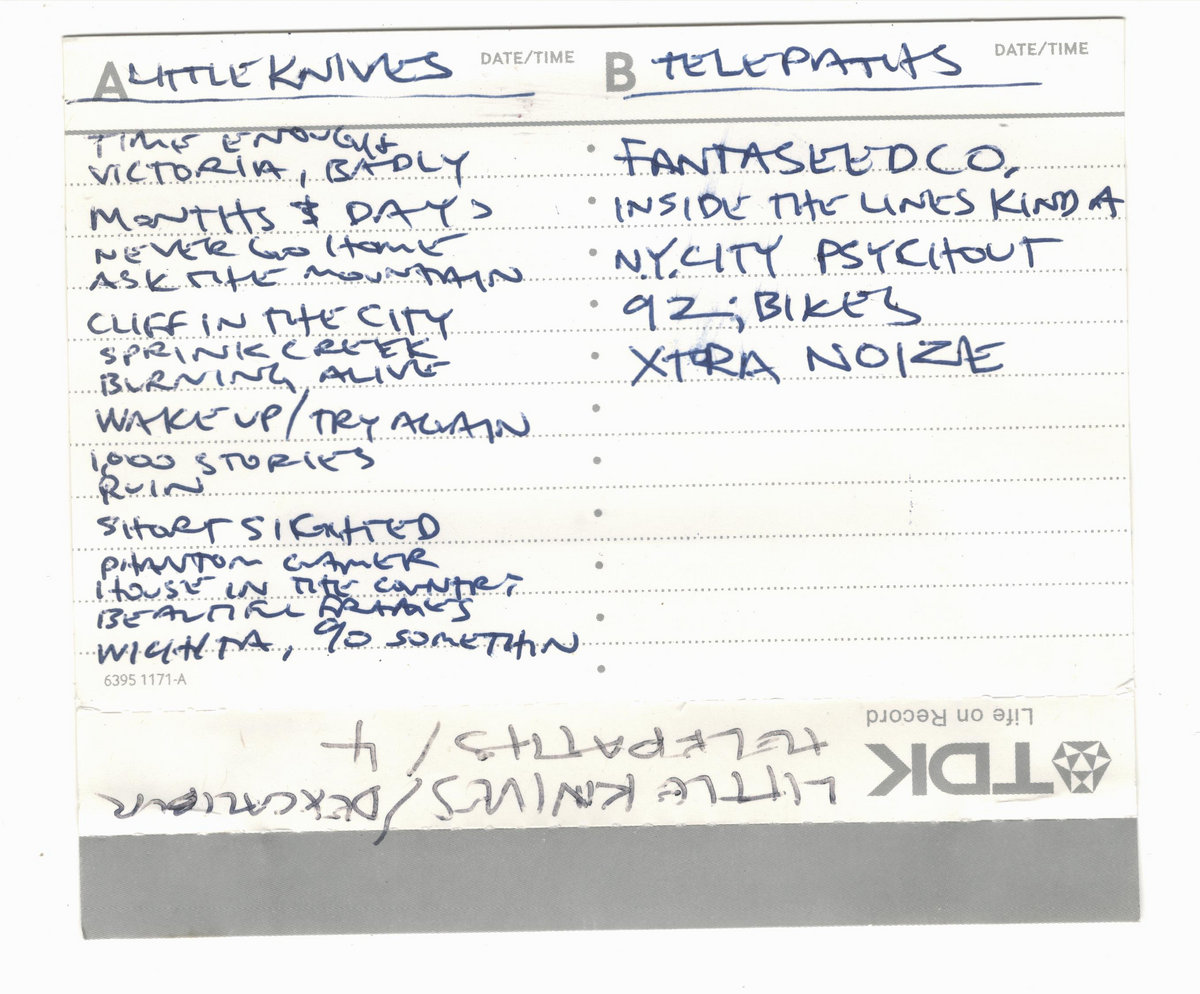 A LITTLE KNIVES DATE/TIME
TIME ENOUGH
VICTORIA, BADLY
MONTHS & DAYS
NEVER GO HOME
ASK THE MOUNTAIN
CLIFF IN THE CITY
SPRINK CREEK
BURNING ALIVE
WAKE UP/TRY AGAIN
1,000 STORIES
RUIN
SHORT SIGHTED
PHANTOM GAMER
HOUSE IN THE COUNTRY
BEAUTIFUL FRAMES
WICHITA, 90 SOMETHIN
6395 1171-A
B TELEPATHS DATE/TIME
FANTASEEDCO.
INSIDE THE LINES KINDA
N.Y. CITY PSYCHOUT
92; BIKES
XTRA NOIZE
TDK
Life on Record
LITTLE KNIVES/DEXCALIBUR
TELEPATHS/4